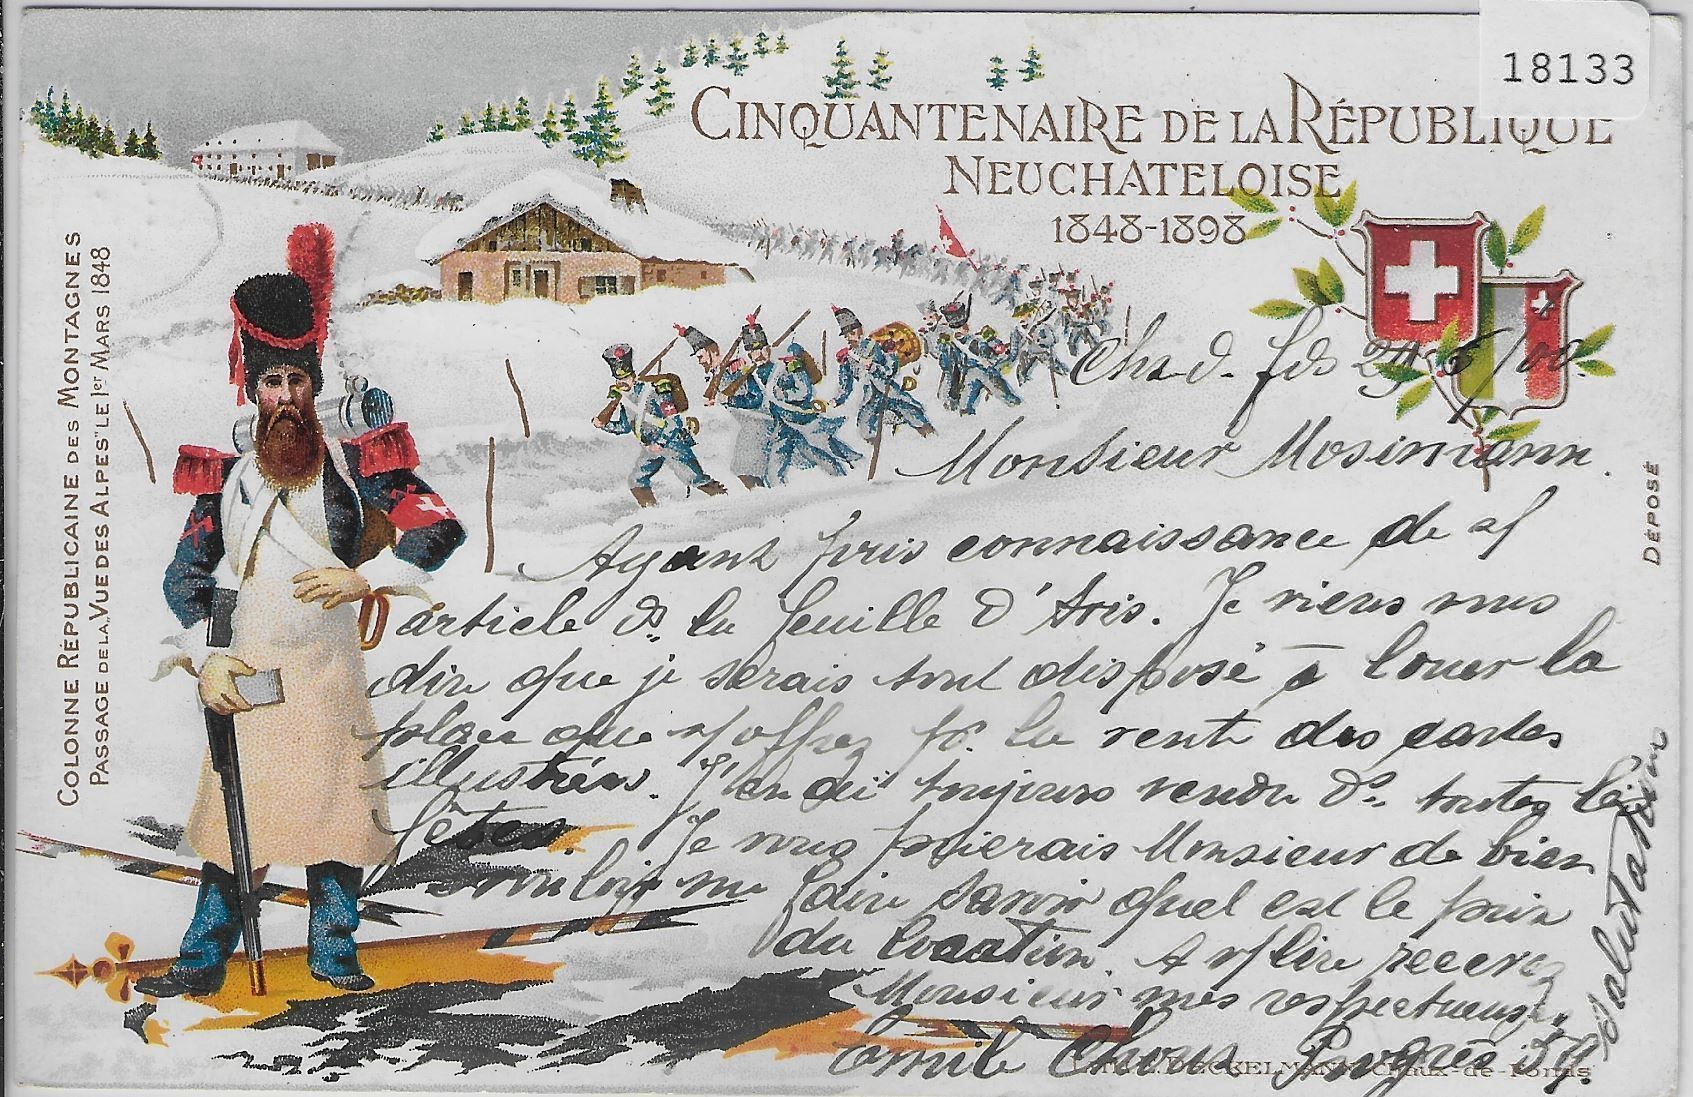 18133
CINQUANTENAIRE DE LA RÉPUBLIQUE
NEUCHATELOISE
1848-1898
COLONNE RÉPUBLICAINE DES MONTAGNES
PASSAGE DE LA „VUE DES ALPES" LE 1er MARS 1848
Ch-d. fds 29/5/00.
Monsieur Mosimann.
Ayant pris connaissance de v/
article ds. la feuille d'Avis. Je viens vous
dire que je serais tout disposé à louer la
place que v/ offrez pr. la vente des cartes
illustrées. J'en ai toujours vendu ds. toutes les
fêtes. Je vous prierais Monsieur de bien
vouloir me faire savoir quel est le prix
du location. A v/ lire recevez
Monsieur mes respectueuses
salutations
Emile Progrès
DÉPOSÉ
Chaux-de-Fonds